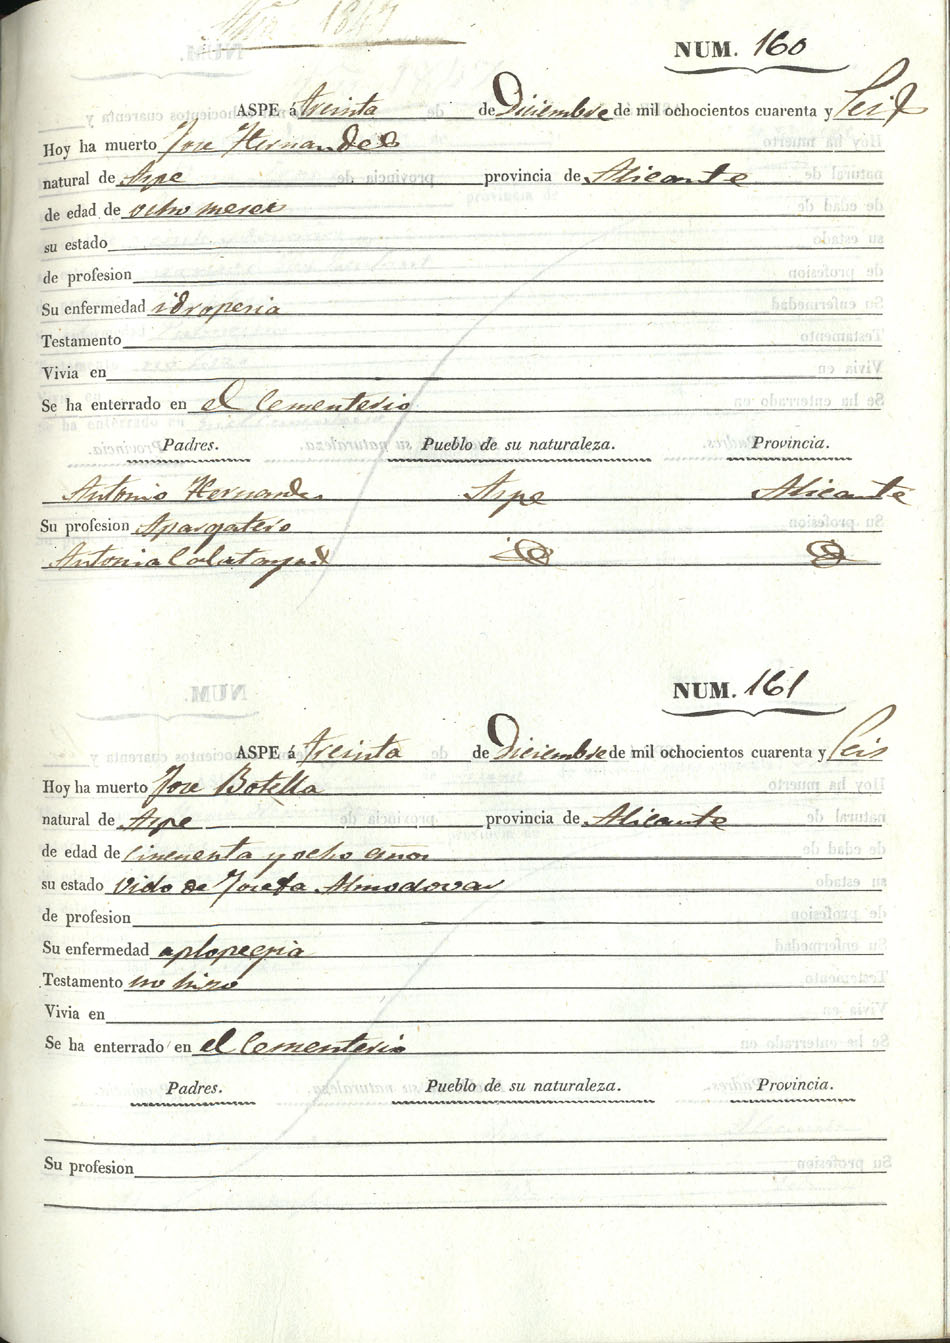 Año 1847
NUM. 160
ASPE á treinta de Diciembre de mil ochocientos cuarenta y Seis
Hoy ha muerto Jose Hernandes
natural de Aspe provincia de Alicante
de edad de ocho meses
su estado
de profesion
Su enfermedad idropesia
Testamento
Vivia en
Se ha enterrado en el Cementerio
Padres. Pueblo de su naturaleza. Provincia.
Antonio Hernandes Aspe Alicante
Su profesion Apargatero
Antonia Calatayud
NUM. 161
ASPE á treinta de Diciembre de mil ochocientos cuarenta y Seis
Hoy ha muerto Jose Botella
natural de Aspe provincia de Alicante
de edad de cincuenta y ocho años
su estado vido de Josefa Almodovar
de profesion
Su enfermedad aplopegia
Testamento no hizo
Vivia en
Se ha enterrado en el Cementerio
Padres. Pueblo de su naturaleza. Provincia.
Su profesion